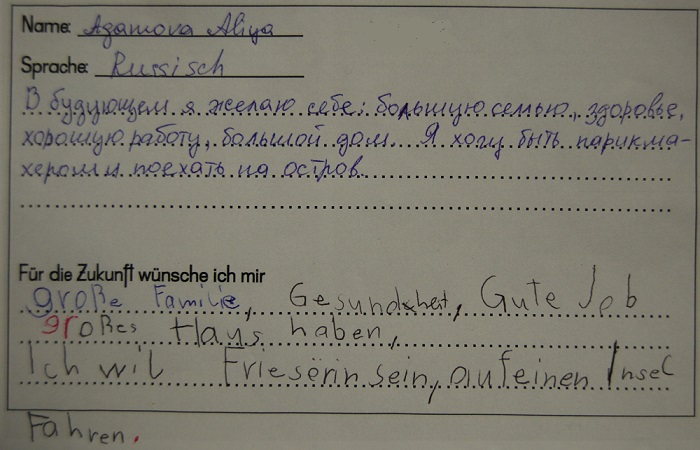 Name: Agamova Aliya
Sprache: Russisch
В будующем я желаю себе: большую семью, здоровье,
хорошую работу, большой дом. Я хочу быть парикма-
хером и поехать на остров.
Für die Zukunft wünsche ich mir
große Familie, Gesundheit, Gute Job
großes Haus haben,
Ich wil Frieserin sein, auf einen Insel
Fahren.